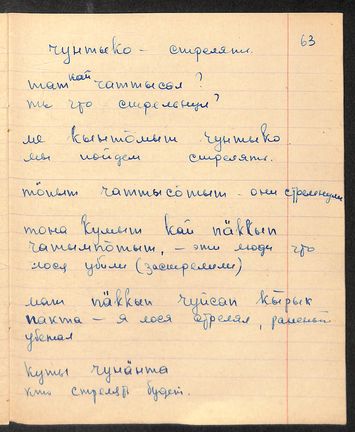 63
чунтыко – стрелять.
тат кай чаттысал?
ты что стрельнул?
ме кынтőмыт чунтыко
мы пойдем стрелять.
тőпыт чаттысőтыт – они стрельнули
тона кумыт кай пӓккып
чатымпőтыт, – эти люди что
лося убили (застрелили)
мат пӓккып чуйсап кырык
пакта – я лося стрелял, раненый
убежал
куты чунӓнта
кто стрелять будет.